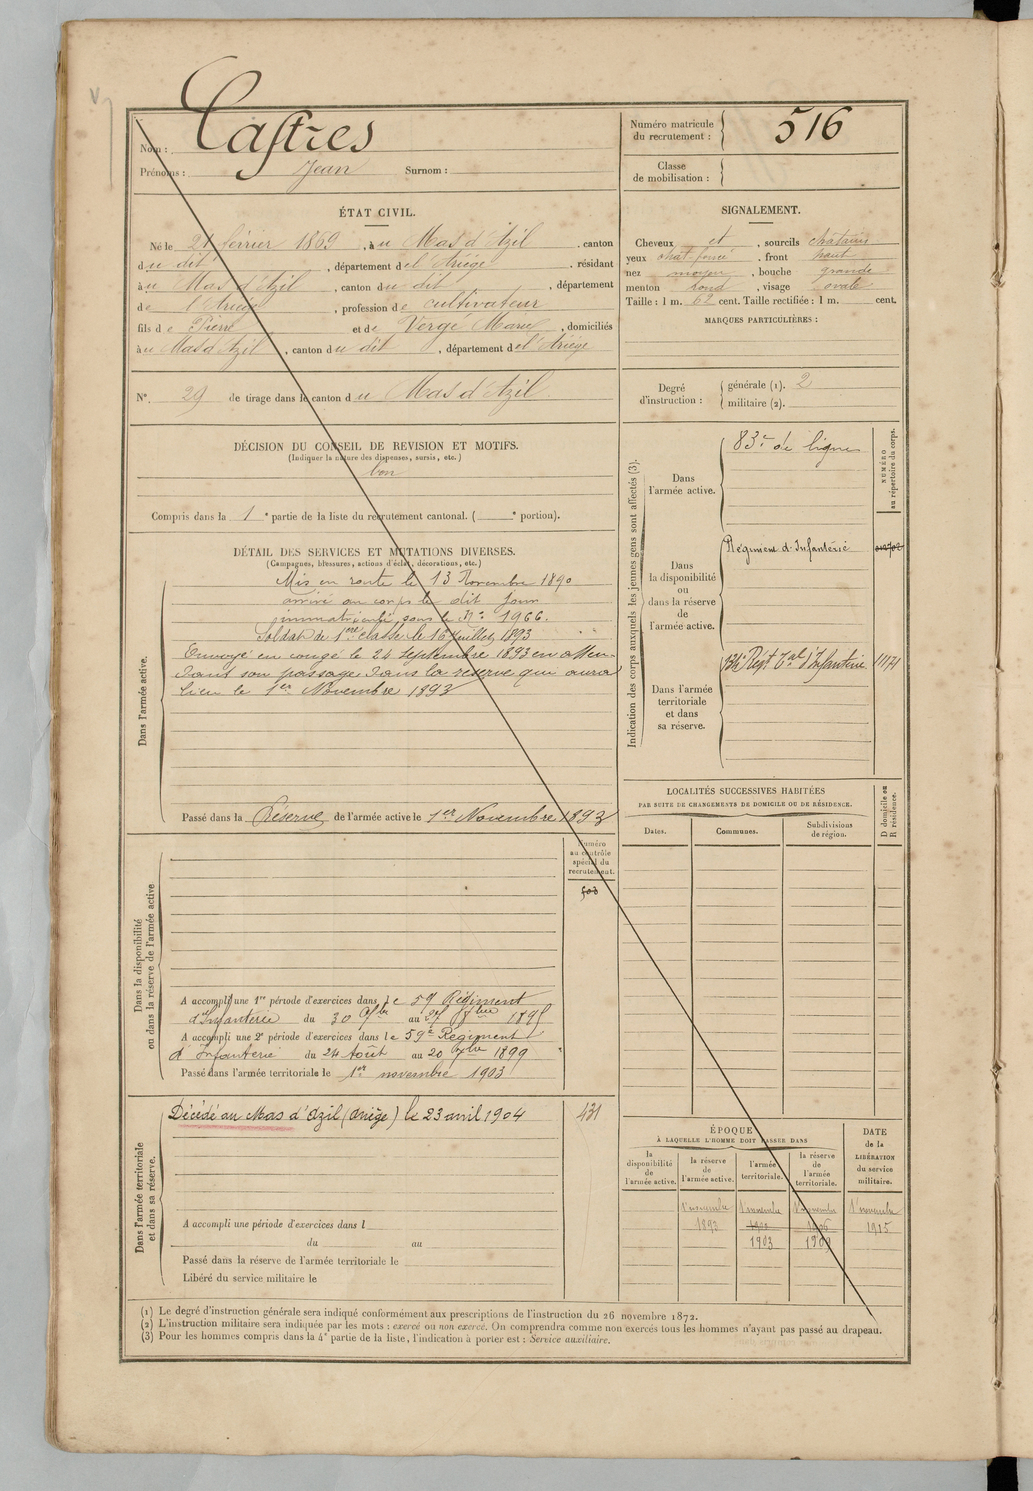 Nom : Castres
Prénoms : Jean Surnom :
Numéro matricule du recrutement : 516
Classe de mobilisation :
ÉTAT CIVIL.
Né le 21 février 1869, à u Mas d'Azil, canton
du dit, département de l'Ariège, résidant
à u Mas d'Azil, canton du dit, département
de l'Ariège, profession de cultivateur
fils de Pierre et de Vergé Marie, domiciliés
à u Mas d'Azil, canton du dit, département de l'Ariège
N°. 29 de tirage dans le canton du Mas d'Azil
SIGNALEMENT.
Cheveux et, sourcils châtains
yeux chat. foncé, front haut
nez moyen, bouche grande
menton rond, visage ovale
Taille : 1 m. 62 cent. Taille rectifiée : 1 m. cent.
MARQUES PARTICULIÈRES :
Degré d'instruction : générale (1). 2
militaire (2).
DÉCISION DU CONSEIL DE REVISION ET MOTIFS.
(Indiquer la nature des dispenses, sursis, etc.)
bon
Compris dans la 1e partie de la liste du recrutement cantonal. ( e portion).
DÉTAIL DES SERVICES ET MUTATIONS DIVERSES.
(Campagnes, blessures, actions d'éclat, décorations, etc.)
Dans l'armée active.
Mis en route le 13 Novembre 1890
arrivé au corps le dit jour
immatriculé sous le N° 1966.
Soldat de 1ère classe le 16 Juillet 1893
Envoyé en congé le 24 Septembre 1893 en atten-
dant son passage dans la réserve qui aura
lieu le 1er Novembre 1893
Passé dans la Réserve de l'armée active le 1er Novembre 1893
Indication des corps auxquels les jeunes gens sont affectés (3).
NUMÉRO au répertoire du corps.
Dans l'armée active.
83e de ligne
Dans la disponibilité ou dans la réserve de l'armée active.
Régiment d'Infanterie
Dans l'armée territoriale et dans sa réserve.
134e Régt Tal d'Infanterie 11171
LOCALITÉS SUCCESSIVES HABITÉES
PAR SUITE DE CHANGEMENTS DE DOMICILE OU DE RÉSIDENCE.
Dates. Communes. Subdivisions de région. D domicile ou R résidence.
Dans la disponibilité ou dans la réserve de l'armée active
Numéro au contrôle spécial du recrutement.
503
A accompli une 1re période d'exercices dans le 59 Régiment
d'Infanterie du 30 au 1895
A accompli une 2e période d'exercices dans le 59e Régiment
d'Infanterie du 24 Août au 20 7bre 1899
Passé dans l'armée territoriale le 1er novembre 1903
Dans l'armée territoriale et dans sa réserve.
Décédé au Mas d'Azil (Ariège) le 23 avril 1904 431
A accompli une période d'exercices dans l
du au
Passé dans la réserve de l'armée territoriale le
Libéré du service militaire le
ÉPOQUE
À LAQUELLE L'HOMME DOIT PASSER DANS
la disponibilité de l'armée active.
la réserve de l'armée active.
l'armée territoriale.
la réserve de l'armée territoriale.
DATE de la LIBÉRATION du service militaire.
1er novembre 1er novembre 1er novembre 1er novembre
1893 1902 1906 1915
1903 1909
(1) Le degré d'instruction générale sera indiqué conformément aux prescriptions de l'instruction du 26 novembre 1872.
(2) L'instruction militaire sera indiquée par les mots : exercé ou non exercé. On comprendra comme non exercés tous les hommes n'ayant pas passé au drapeau.
(3) Pour les hommes compris dans la 4e partie de la liste, l'indication à porter est : Service auxiliaire.